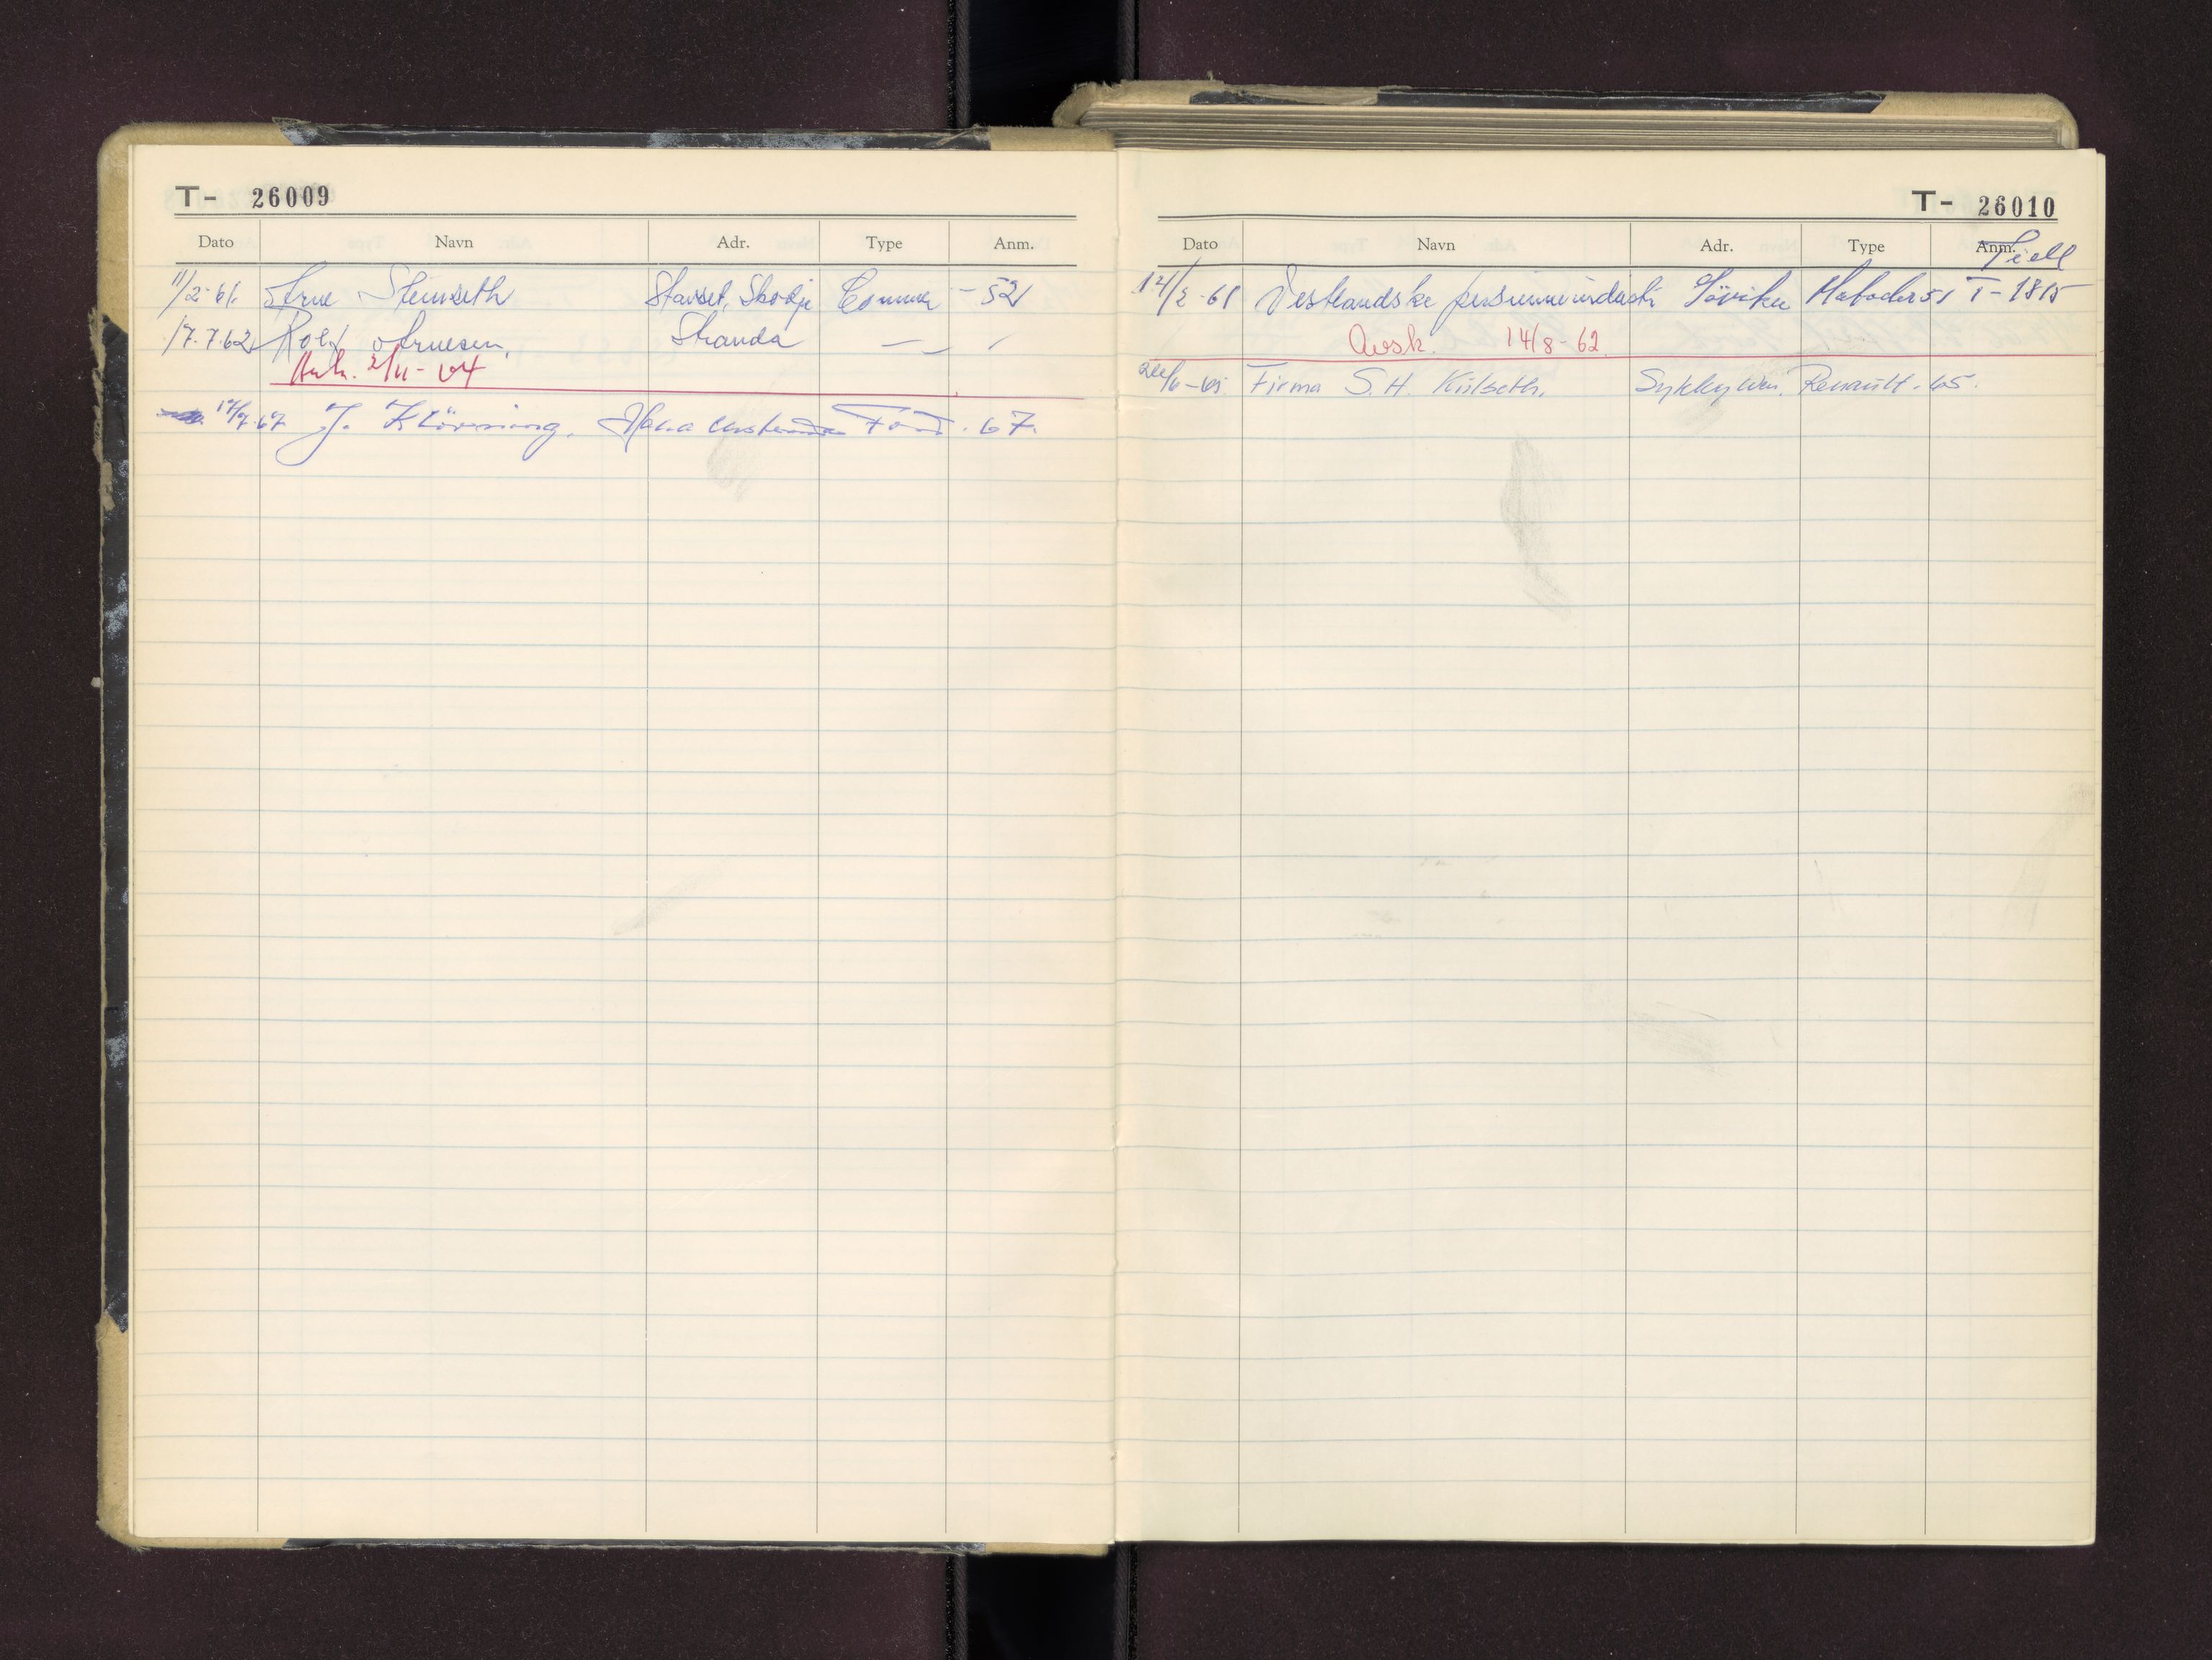 T- 26009
Dato Navn Adr. Type Anm.
11/2-61 Arne Stenseth Stavset, Skodje Commer - 52
17.7.62 Rolf Arnesen, Stranda — " —
Avsk. 2/11-64
17/7.67 J. Klörning, Ford. 67.
T- 26010
Dato Navn Adr. Type Anm.
Tidl
14/2-61 Vestlandske persienneindustri Söviken 51 T-1815
Avsk. 14/8-62.
Firma S.H. Kilseth, Sykkylven, Renault. 65.